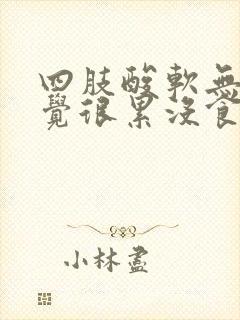 四肢酸軟無
覺很累沒食
小林盡